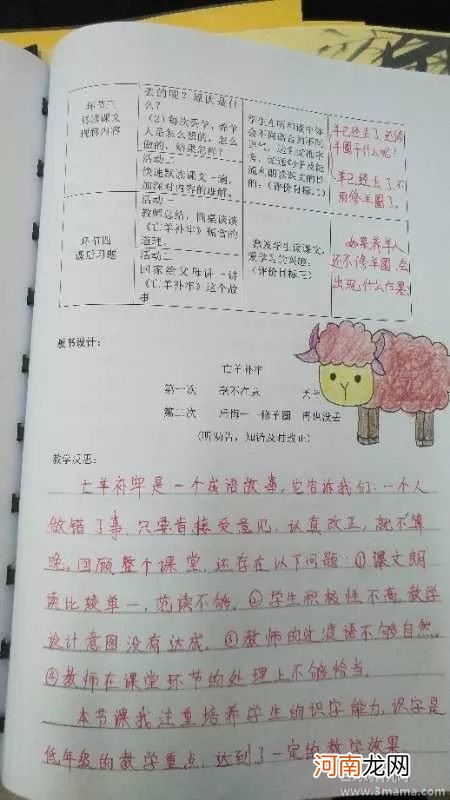 丢的呢？原因是什
么？
环节三
（2）每次丢羊，养羊
人是怎么想的，怎么
做的，结果怎样？
活动二
快速默读课文一遍，
加深对内容的理解。
羊已经丢了，还修
羊圈干什么呢？
羊已经丢了，不
用修羊圈了。
环节四
课后习题
活动一
教师总结，同桌谈谈
《亡羊补牢》蕴含的
道理。
活动二
回家给父母讲一讲
《亡羊补牢》这个故
事
激发学生读课文，
爱学习的兴趣。
（评价目标三）
如果养羊人
还不修羊圈，会
出现什么后果
板书设计：
亡羊补牢
第一次 毫不在意 丢羊
第二次 后悔 修羊圈 再也没丢
（听劝告，知错及时改正）
教学反思：
亡羊补牢是一个成语故事，它告诉我们：一个人
做错了事，只要肯接受意见，认真改正，就不算
晚。回顾整个课堂，还存在以下问题：①课文朗
读比较单一，范读不够。②学生积极性不高，教学
设计意图没有达成。③教师的过渡语不够自然。
④教师在课堂环节的处理上不够恰当。
本节课我注重培养学生的识字能力，识字是
低年级的教学重点，达到了一定的教学效果
河南龙网
www.3mama.com